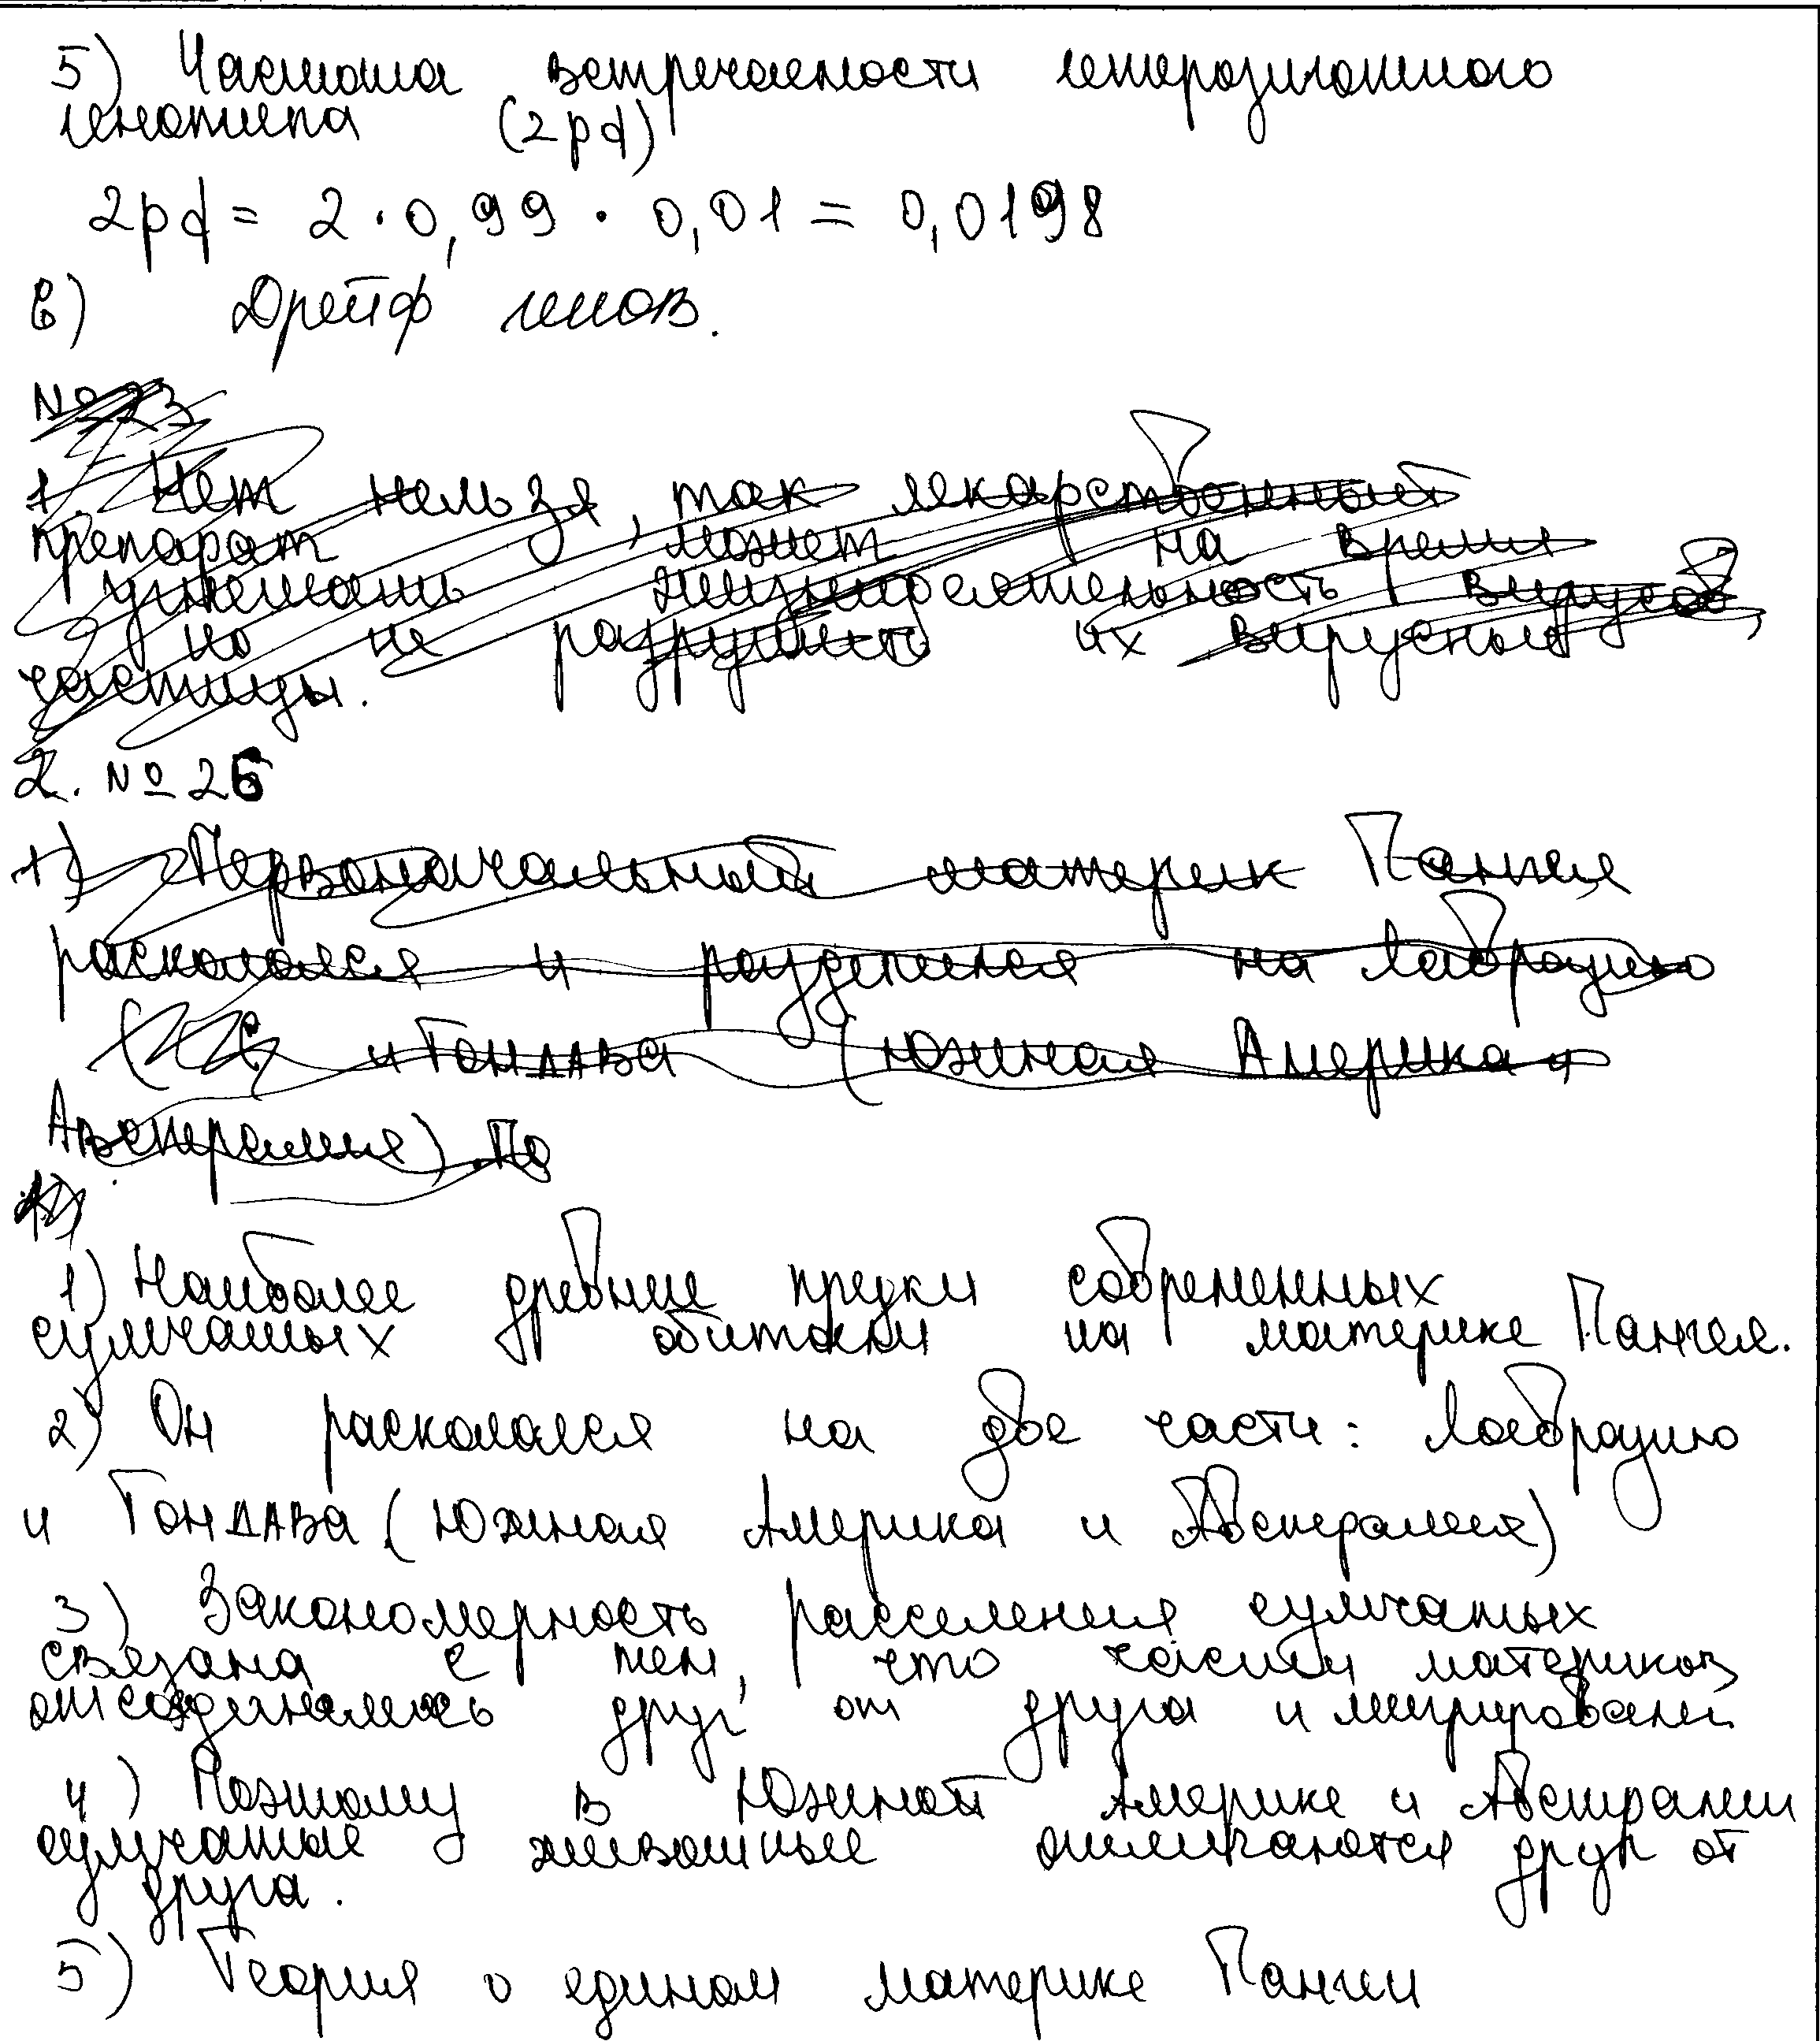 5) Частота встречаемости гетерозиготного
генотипа (2pq)
2pq = 2 · 0,99 · 0,01 = 0,0198
6) Дрейф генов.
№ 23
1. Нет нельзя, так лекарственный
препарат может на время
угнетать жизнедеятельность вирусов,
но не разрушить их вирусные
частицы.
2. № 26
1) Первоначальный материк Пангея
раскололся и разделился на Лавразию
и Гондава (Южная Америка и
Австралия). По
1)
1) Наиболее древние предки современных
сумчатых обитали на материке Пангея.
2) Он раскололся на две части: Лавразию
и Гондава (Южная Америка и Австралия)
3) Закономерность расселения сумчатых
связана с тем, что части материков
отсоединялись друг от друга и мигрировали
4) Поэтому в Южной Америке и Австралии
сумчатые животные отличаются друг от
друга.
5) Теория о едином материке Пангеи